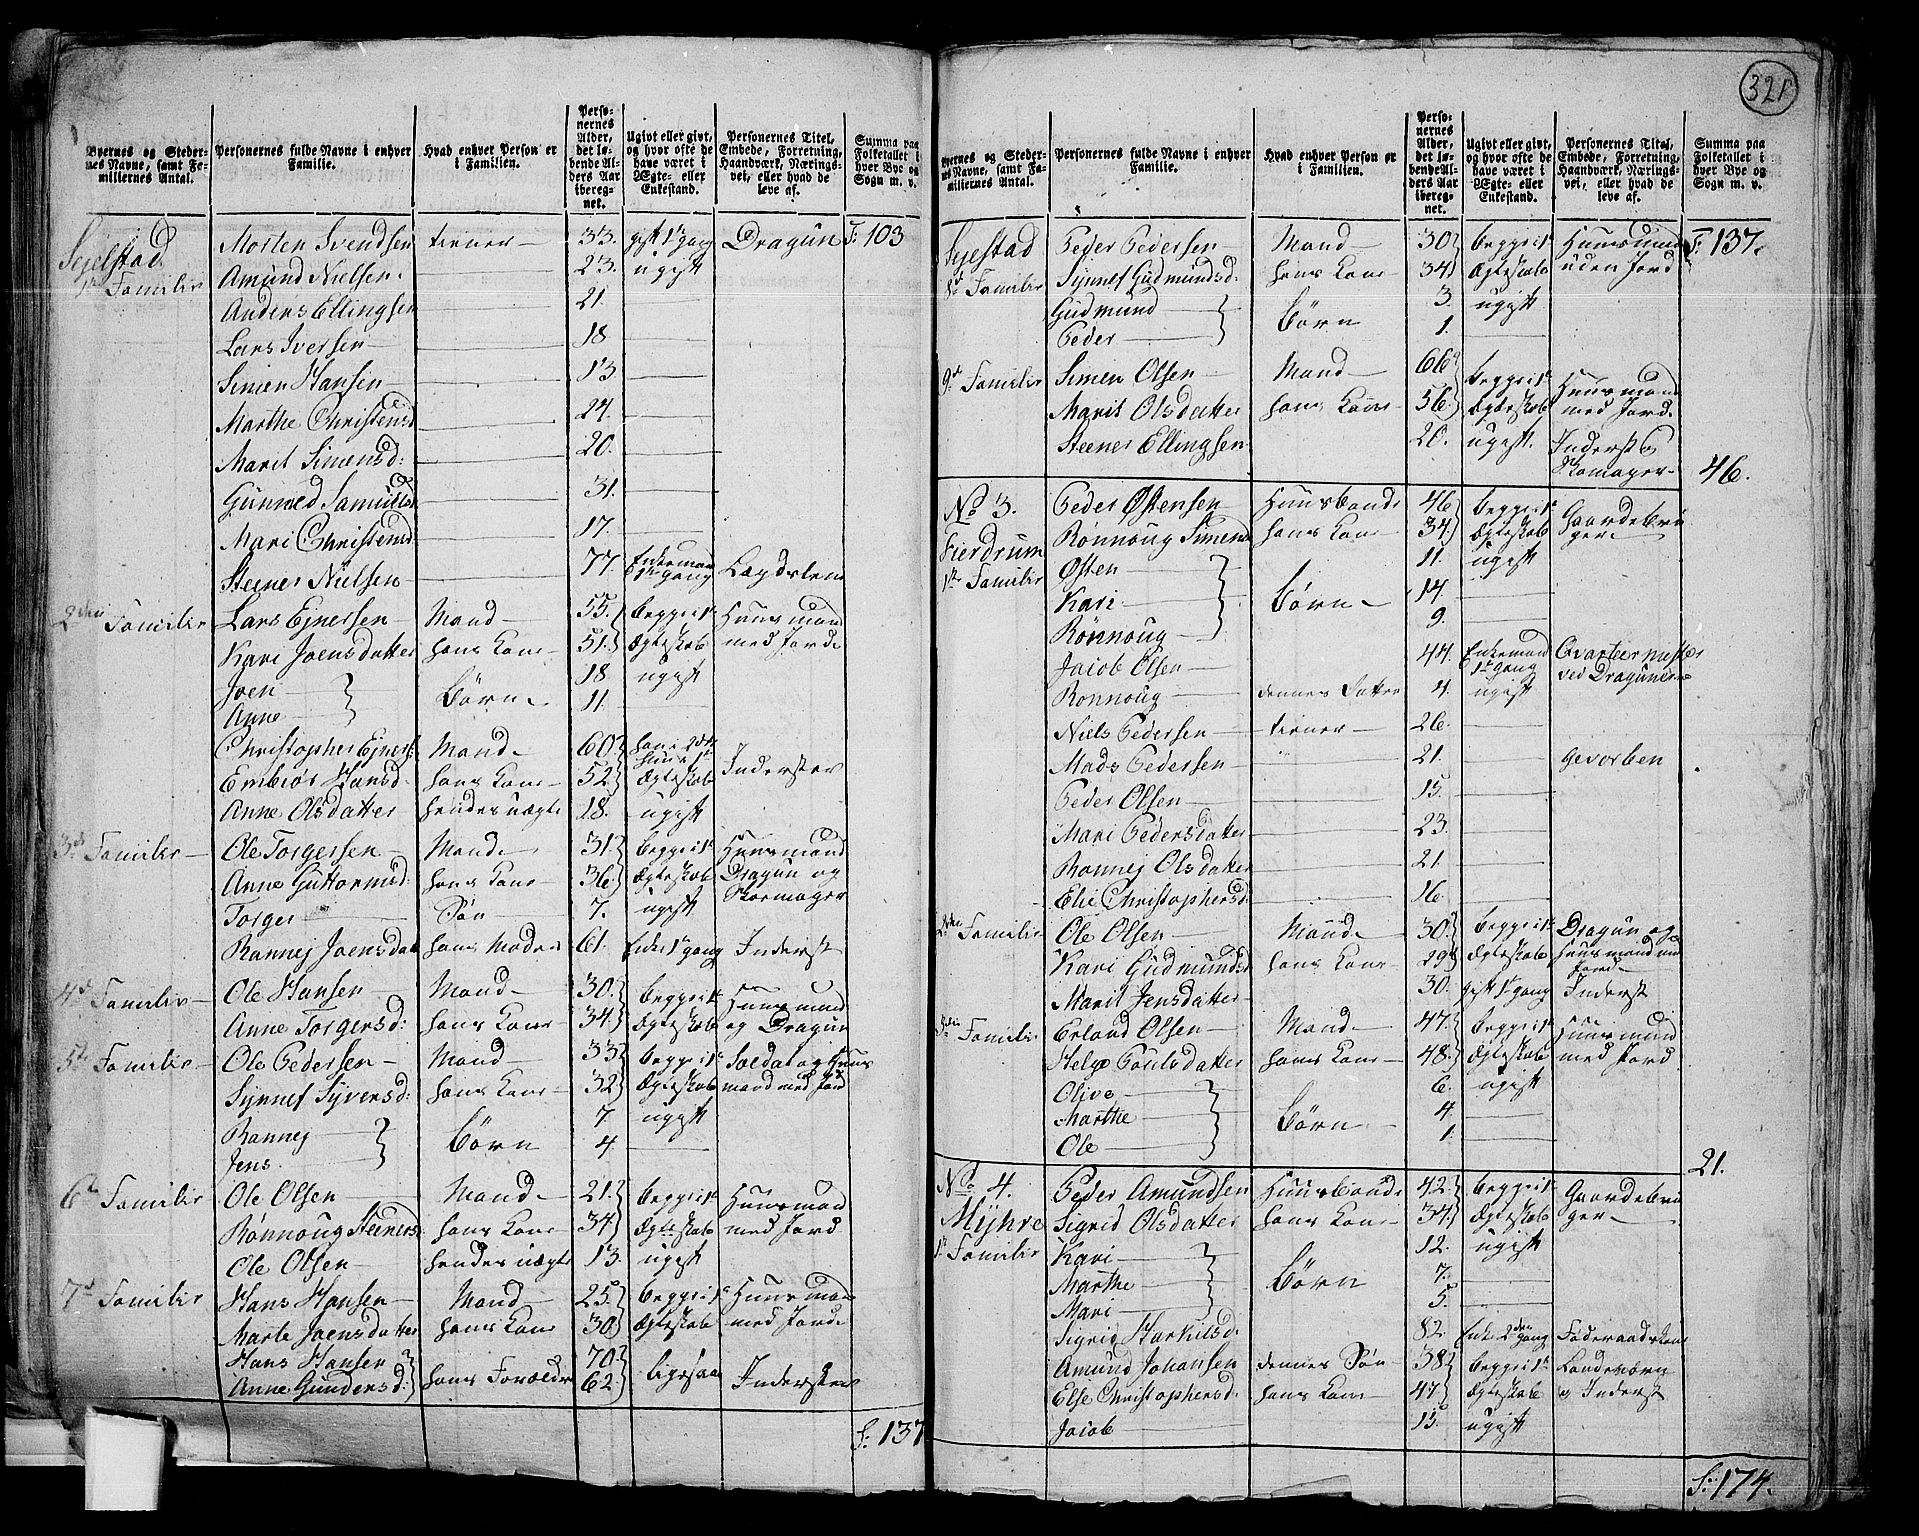 321
Byernes og Stedernes Navne, samt Familiernes Antal.
Personernes fulde Navne i enhver Familie.
Hvad enhver Person er i Familien.
Personernes Alder, det løbende Alders Aar iberegnet.
Ugivt eller givt, og hvor ofte de have været i Ægte- eller Enkestand.
Personernes Titel, Embede, Forretning, Haandværk, Næringsvei, eller hvad de leve af.
Summa paa Folketallet i hver Bye og Sogn m. v.
Sejelstad Morten Svendsen tiener 33. gift 1te gang Dragun T: 103
1te Familie Amund Nielsen 23. ugift
Anders Ellingsen 21.
Lars Iversen 18
Simen Hansen 13
Marthe Christensd 24.
Marit Simensd: 20.
Gunned Samuelsd 31.
Mari Christensd 17.
Steener Nielsen 77 Enkemand 1te gang Lægdslem
2den Familie Lars Ejnersen Mand 55. begge i 1te Huusmand
Kari Joensdatter hans Kone 51. Ægteskab med Jord
Joen 18 ugift
Anne Børn 11.
Christopher Ejners: Mand 60.
Embiør Hansd: hans Kone 52 Ægteskab Inderster
Anne Olsdatter hendes uægte 18. ugift
3de Familie Ole Torgersen Mand 31. begge i 1te Huusmand
Anne Guttormsd: hans Kone 36. Ægteskab Dragun og
Torger Søn 7. ugift Skomager
Rannej Joensdat hans Moder 61. Enke 1te gang Inderst
4de Familie Ole Hansen Mand 30. begge i 1te Huusmand
Anne Torgersd: hans Kone 34. Ægteskab og Dragun
5te Familie Ole Pedersen Mand 33 begge i 1te Soldat og Huus
Synnef Syversd: hans Kone 32 Ægteskab mand med Jord
Rannej 7 ugift
Jens Børn 4.
6te Familie Ole Olsen Mand 21. begge i 1te Huusmand
Rønnoug Steenersd hans Kone 34. Ægteskab med Jord
Ole Olsen hendes uægte 13. ugift
7de Familie Hans Hansen Mand 25. begge i 1te Huusman
Marte Joensdatter hans Kone 30. Ægteskab med Jord
Hans Hansen 70
Anne Gundersd: hans Foræld 62 ligesaa Inderster
S: 137
Byernes og Stedernes Navne, samt Familiernes Antal.
Personernes fulde Navne i enhver Familie.
Hvad enhver Person er i Familien.
Personernes Alder, det løbende Alders Aar iberegnet.
Ugivt eller givt, og hvor ofte de have været i Ægte- eller Enkestand.
Personernes Titel, Embede, Forretning, Haandværk, Næringsvei, eller hvad de leve af.
Summa paa Folketallet i hver Bye og Sogn m. v.
Sejestad Peder Pedersen Mand 30 begge i 1te Huusmand T: 137.
8de Familie Synnef Gudmundsd. hans Kone 34 Ægteskab uden Jord
Gudmund 3. ugift
Peder Børn 1.
9de Familie Simen Olsen Mand 66 begge i 1te Huusmand
Marit Olsdatter hans Kone 56. Ægteskab med Jord.
Steener Ellingsen 20. ugift. Inderst og
Skomager 46.
No 3. Peder Østensen Huusbonde 46 begge i 1te Gaardebru
Fierdrum Rønnoug Simensd hans Kone 34 Ægteskab ger
1te Familie Østen 11. ugift
Kari Børn 14.
Rønnoug 9.
Jacob Olsen 44. Enkemand 1te gang Qvarteermister ved Dragunerne
Rønnoug dennes Datter 4. ugift
Niels Pedersen tiener 26.
Mads Pedersen 21. gevorben
Peder Olsen 15.
Mari Pedersdatter 23.
Rannej Olsdatter 21.
Elie Christophersd 16.
2den Familie Ole Olsen Mand 30. begge i 1te Dragun og
Kari Gudmundsd hans Kone 29 Ægteskab Huusmand med Jord
Marit Jensdatter 30. gift 1te gang Inderst
3die Familie Erland Olsen Mand 47. begge i 1te Huusmand
Helge Poulsdatter hans Kone 48. Ægteskab med Jord
Olive 6. ugift
Marthe Børn 4.
Ole 1.
21.
No 4. Peder Amundsen Huusbonde 42. begge i 1te Gaardebru
Myhre Sigrid Olsdatter hans Kone 34. Ægteskab ger
1te Familie Kari 12. ugift
Marthe Børn 7.
Mari 5.
Sigrid 82. Enke 2den gang
Amund Johansen dennes Søn 38 begge i 1te Landeværn
Else Christophersd. hans Kone 47 Ægteskab og Inderst
Jacob 15. ugift
S: 174.